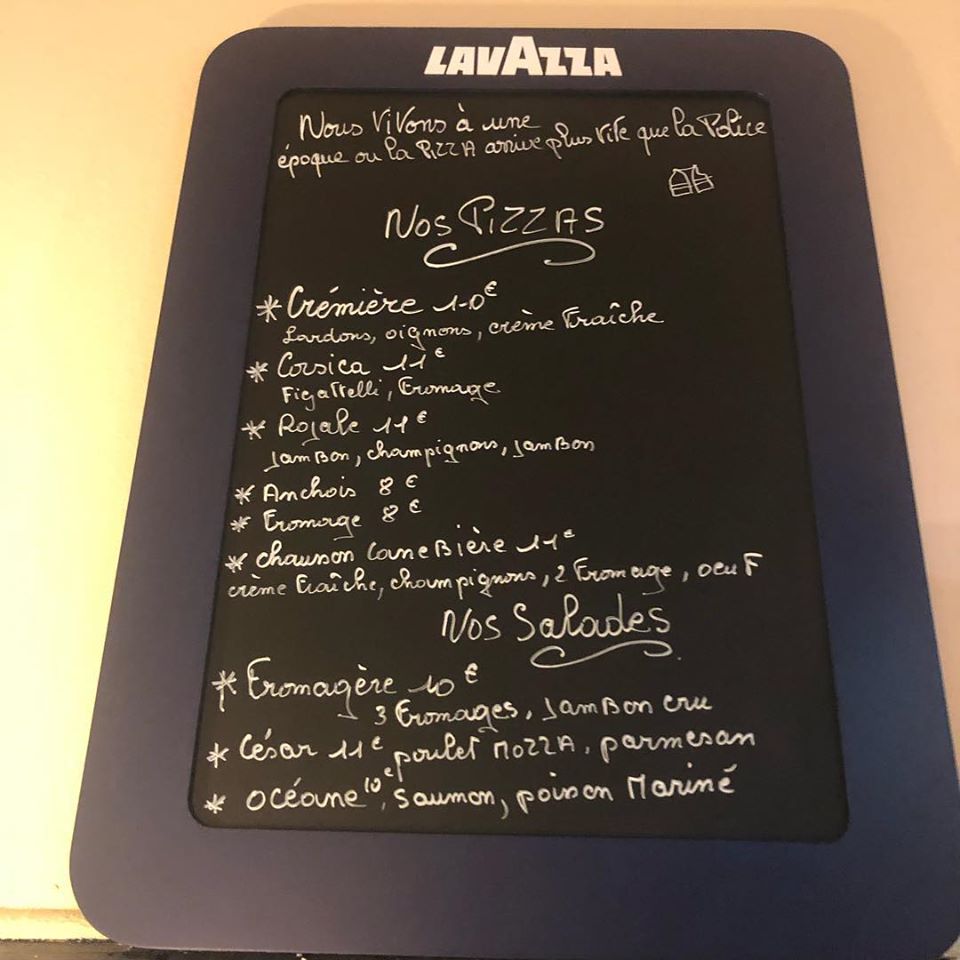 LAVAZZA
Nous Vivons à une
époque ou la PIZZA arrive plus vite que la Police
Nos PIZZAS
* Crémière 10€
Lardons, oignons, crème Fraîche
* Corsica 11€
Figattelli, Fromage
* Royale 11€
JamBon, champignons, JamBon
* Anchois 8€
* Fromage 8€
* chausson CaneBière 11€
crème Fraîche, champignons, 2 Fromage, oeuF
Nos Salades
* Fromagère 10€
3 Fromages, JamBon cru
* César 11€ poulet MOZZA, parmesan
* océane 10€, Saumon, poisson Mariné